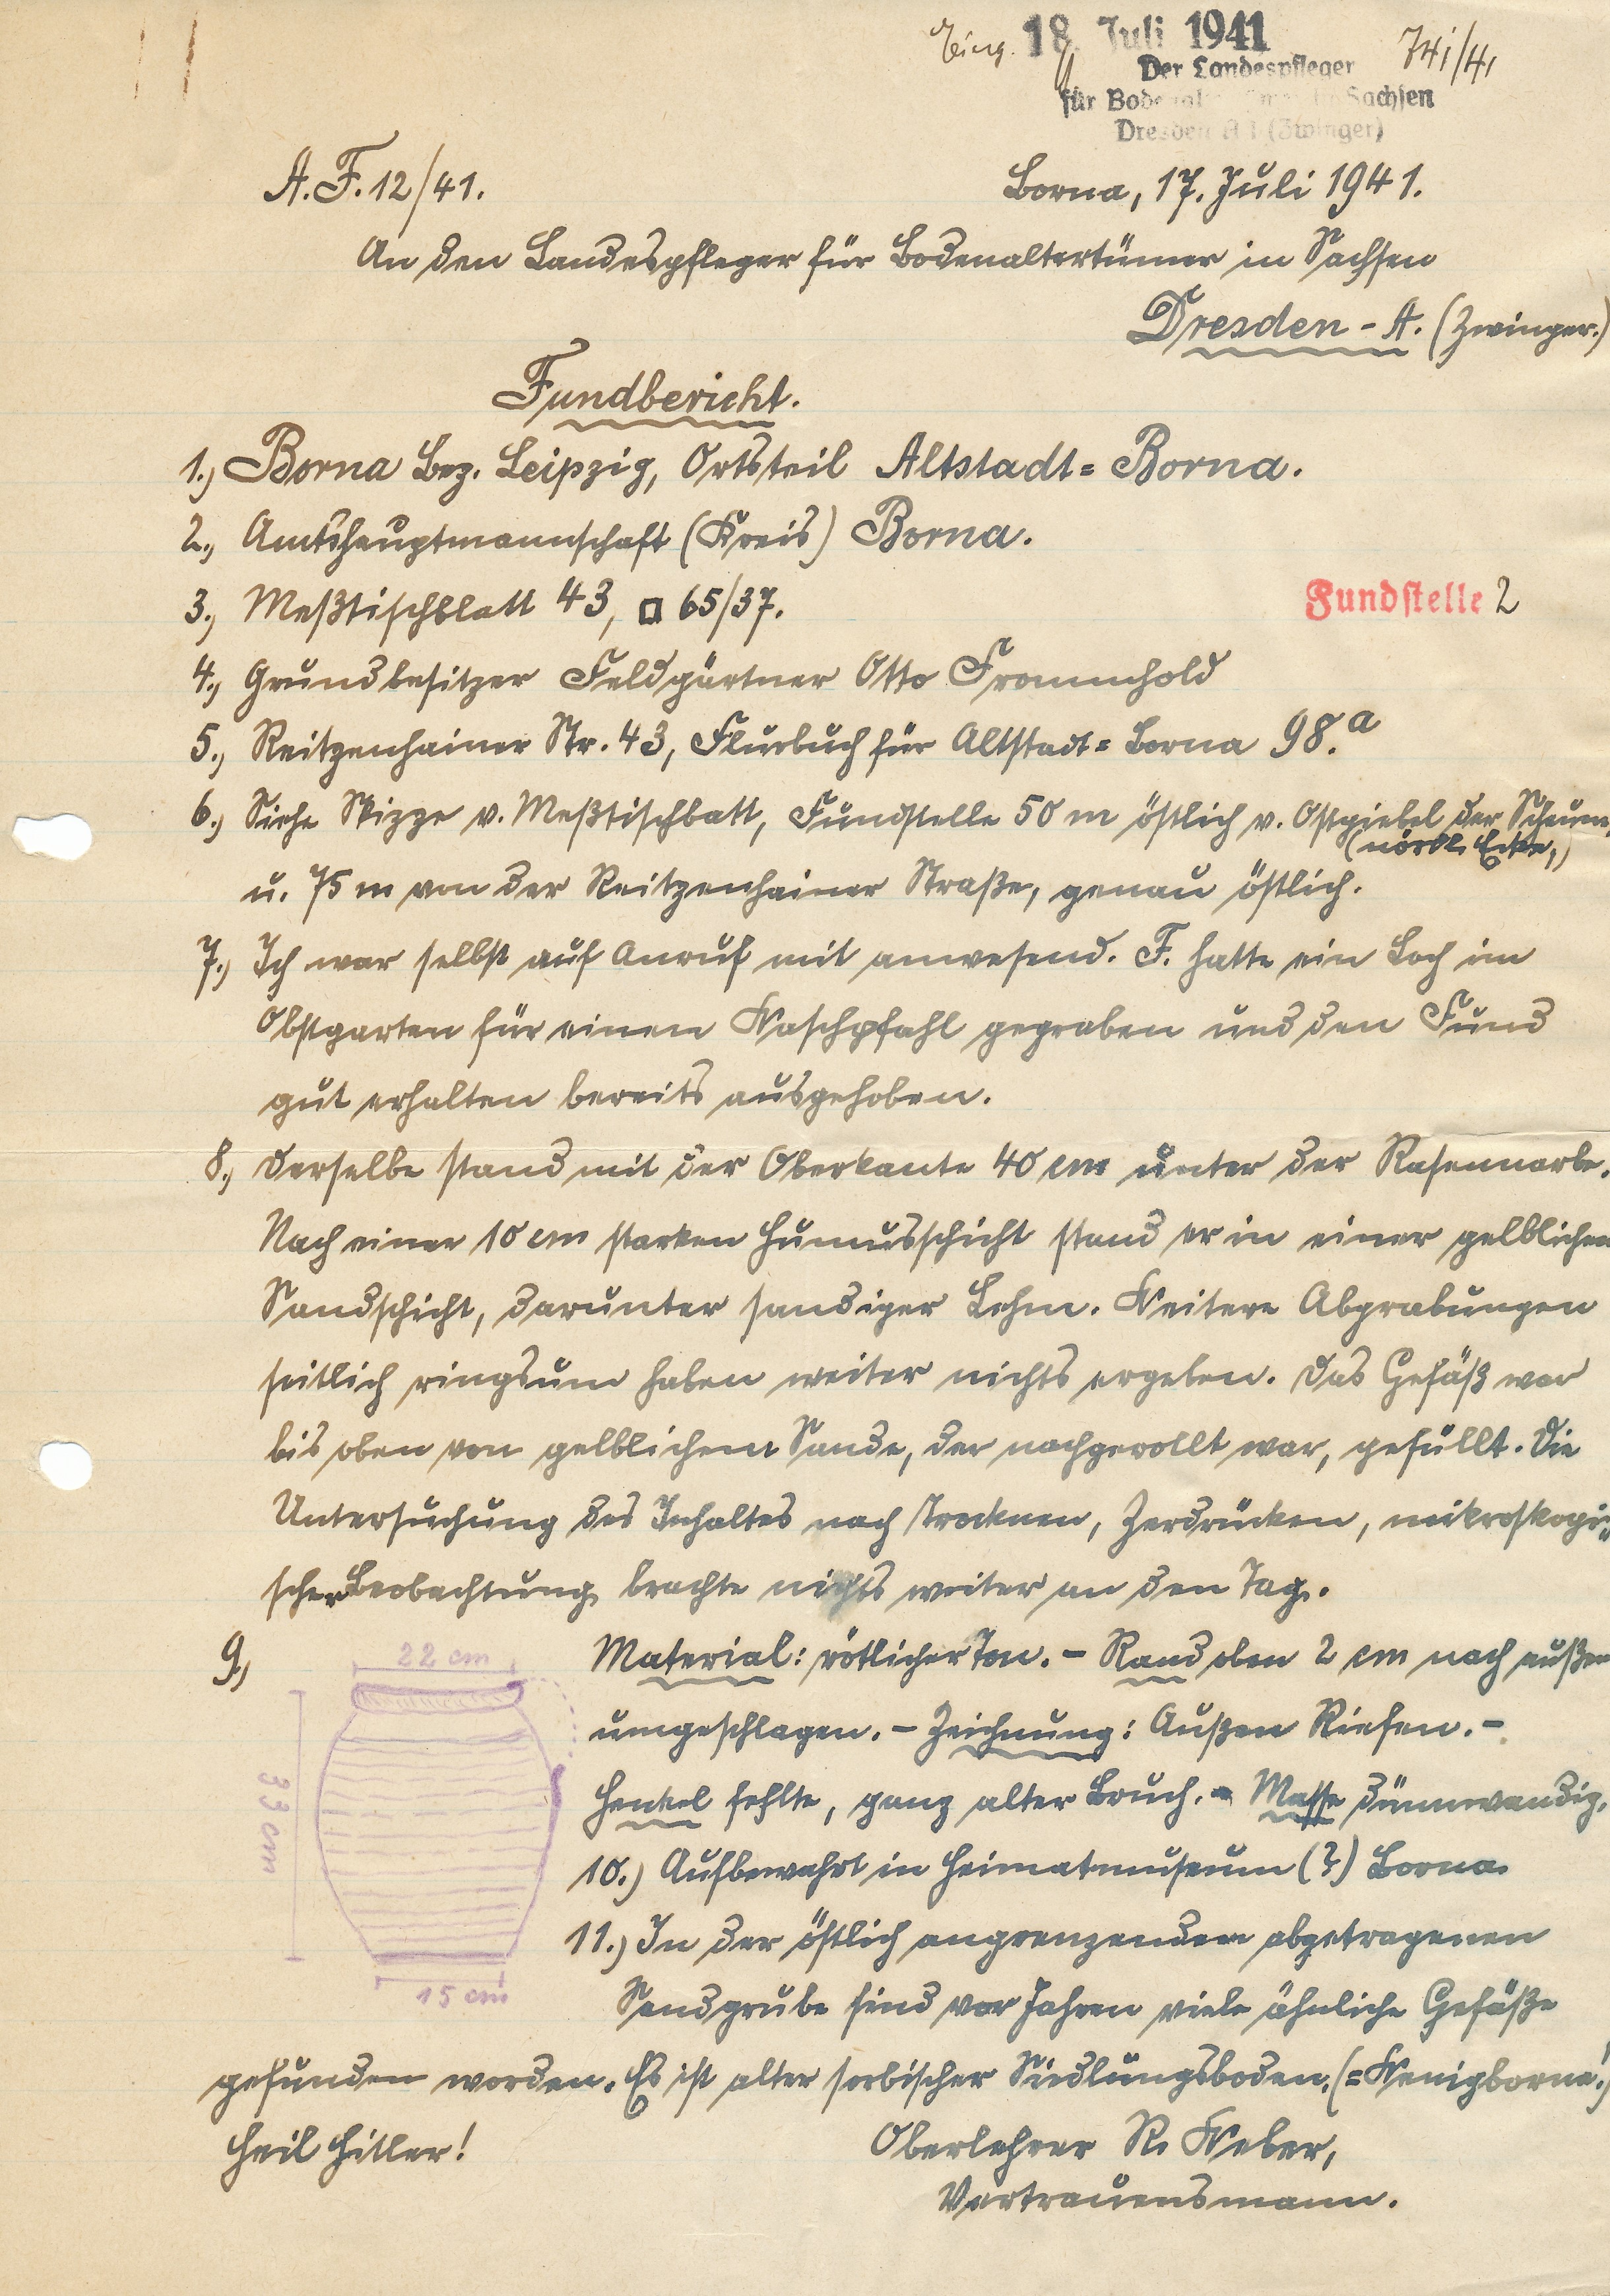 Eing. 18. Juli 1941 741/41
Der Landespfleger
für Bodenaltertümer in Sachsen
Dresden A 1 (Zwinger)
A. F. 12/41. Borna, 17. Juli 1941.
An den Landespfleger für Bodenaltertümer in Sachsen
Dresden-A. (Zwinger.)
Fundbericht.
1.) Borna Bez. Leipzig, Ortsteil Altstadt=Borna.
2.) Amtshauptmannschaft (Kreis) Borna.
3.) Meßtischblatt 43, □ 65/37. Fundstelle 2
4.) Grundbesitzer Feldgärtner Otto Frommhold
5.) Reitzenhainer Str. 43, Flurbuch für Altstadt=Borna 98.a
6.) Siehe Skizze v. Meßtischbatt, Fundstelle 50 m östlich v. Ostgiebel der Scheune,
(nördl. Ecke,)
u. 75 m von der Reitzenhainer Straße, genau östlich.
7.) Ich war selbst auf Anruf mit anwesend. F. hatte ein Loch im
Obstgarten für einen Waschpfahl gegraben und den Fund
gut erhalten bereits ausgehoben.
8.) Derselbe stand mit der Oberkante 40 cm unter der Rasennarbe.
Nach einer 10 cm starken Humusschicht stand er in einer gelblichen
Sandschicht, darunter sandiger Lehm. Weitere Abgrabungen
seitlich ringsum haben weiter nichts ergeben. Das Gefäß war
bis oben von gelblichem Sande, der nachgerollt war, gefüllt. Die
Untersuchung des Inhaltes nach Trocknen, Zerdrücken, mikroskopi=
scher Beobachtung brachte nichts weiter an den Tag.
9.) 22 cm
33 cm
15 cm
Material: rötlicher Ton. – Rand oben 2 cm nach außen
umgeschlagen. – Zeichnung: Außen Riefen. –
Henkel fehlte, ganz alter Bruch. – Masse dünnwandig.
10.) Aufbewahrt in Heimatmuseum (?) Borna.
11.) In der östlich angrenzenden abgetragenen
Sandgrube sind vor Jahren viele ähnliche Gefäße
gefunden worden. Es ist alter sorbischer Siedlungsboden. (=Wenigborna!)
Heil Hitler! Oberlehrer R. Weber,
Vertrauensmann.